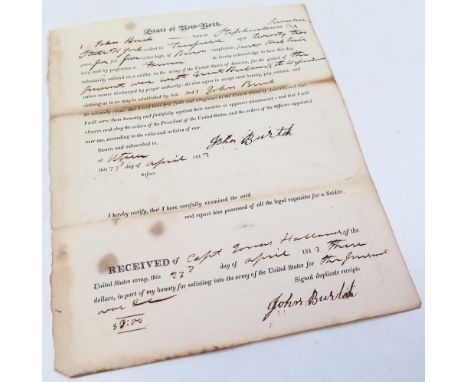 State of New-York.
I John Burch born in Stephentown
State N York
aged twenty two
five feet high, of Brown complexion,
hair, and by profession a farmer do hereby acknowledge to have this day
voluntarily enlisted as a soldier in the army of the United States of America, for the period of the
present war with Great Britain
unless sooner discharged by proper authority; do also agree to accept such bounty, pay, rations, and
clothing as is or may be established by law. And I John Burch
do solemnly swear, that I will bear true faith and allegiance to the United States of America, and that
I will serve them honestly and faithfully against their enemies or opposers whomsoever; and that I will
observe and obey the orders of the President of the United States, and the orders of the Officers appointed
over me, according to the rules and articles of war.
Sworn and subscribed to,
at Utica
this 23d day of April 1813
John Burtch
before
I hereby certify, that I have carefully examined the said
and report him possessed of all the legal requisites for a Soldier.
RECEIVED of Capt Jonas Holland of the
United States army, this 23d day of April 1813 Three
dollars, in part of my bounty for enlisting into the army of the United States for the present
war
Signed duplicate receipts
$8.00
John Burtch